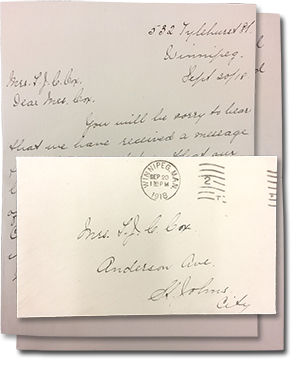 532 Tylehurst St.
Winnipeg.
Sept 20/18
Mrs. T. J. C. Cox.
Dear Mrs. Cox.
You will be sorry to hear
that we have received a message
that our
WINNIPEG, MAN.
SEP 20
PM
1918
Mrs. T. J. C. Cox.
Anderson Ave.
St. Johns,
City